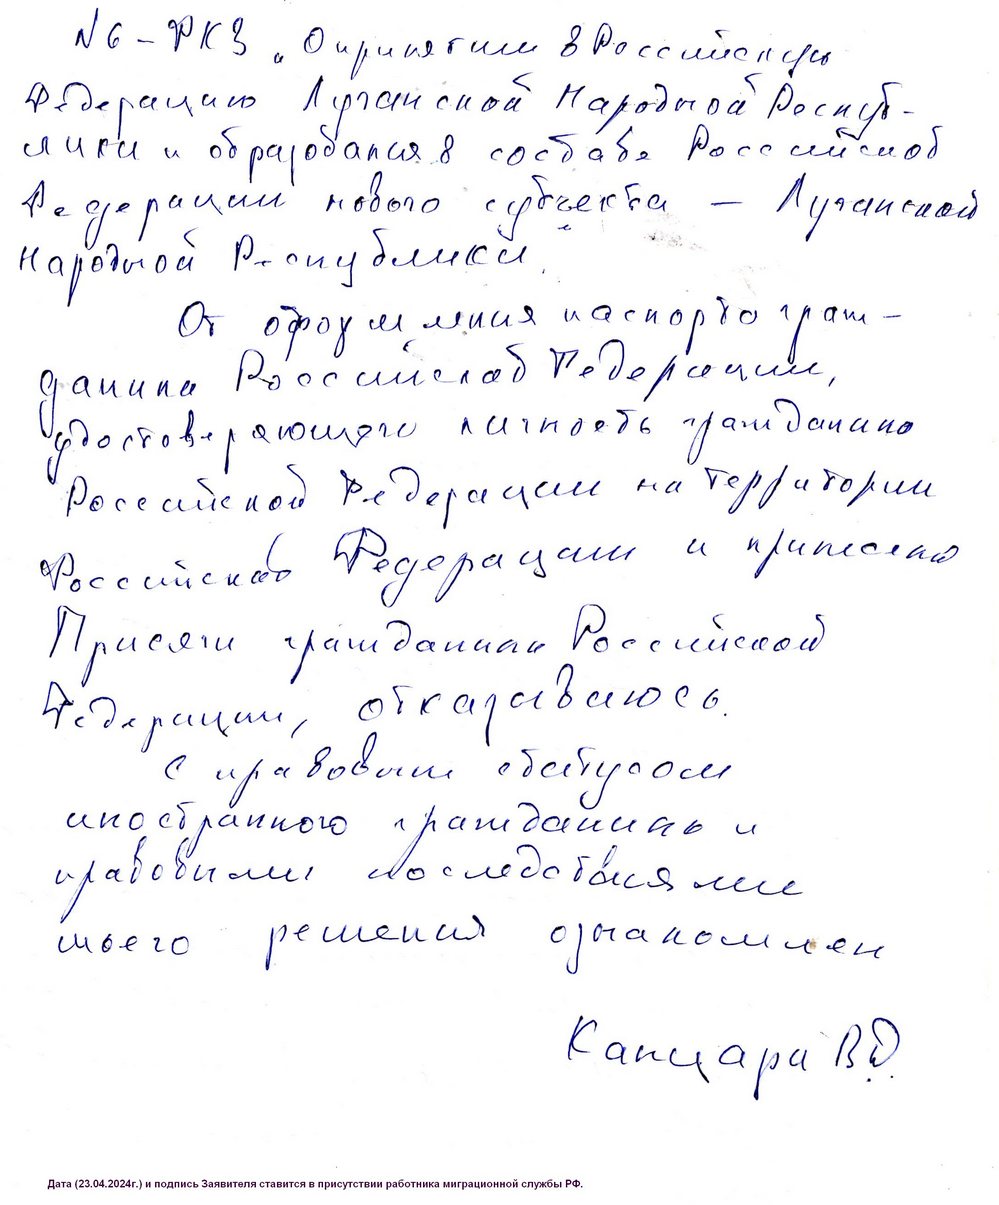 N6-ФКЗ „О принятии в Российскую
Федерацию Луганской Народной Респуб-
лики и образования в составе Российской
Федерации нового субъекта — Луганской
Народной Республики.
От оформления паспорта граж-
данина Российской Федерации,
удостоверяющего личность гражданина
Российской Федерации на территории
Российской Федерации и принесения
Присяги гражданина Российской
Федерации, отказываюсь.
С правовым статусом
иностранного гражданина и
правовыми последствиями
моего решения ознакомлен
Капцари В.Д.
Дата (23.04.2024г.) и подпись Заявителя ставится в присутствии работника миграционной службы РФ.